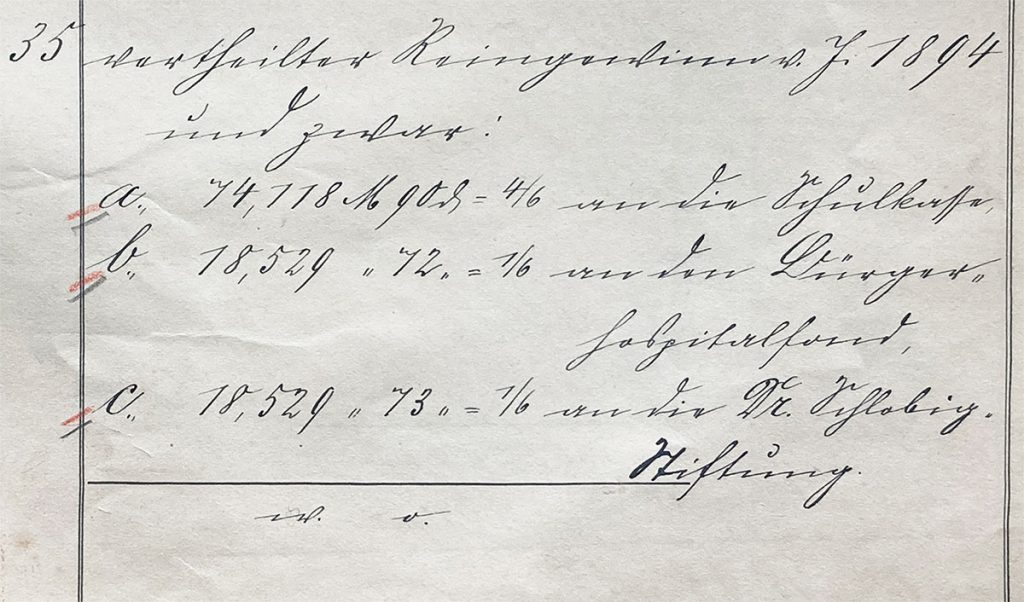 35 vertheilter Reingewinn v. J. 1894
und zwar:
a., 74,118 M 90 d = 4/6 an die Schulkasse,
b., 18,529 " 72 " = 1/6 an den Bürger-
hospitalfond,
c., 18,529 " 73 " = 1/6 an die Dr. Schlobig-
Stiftung.
w. o.